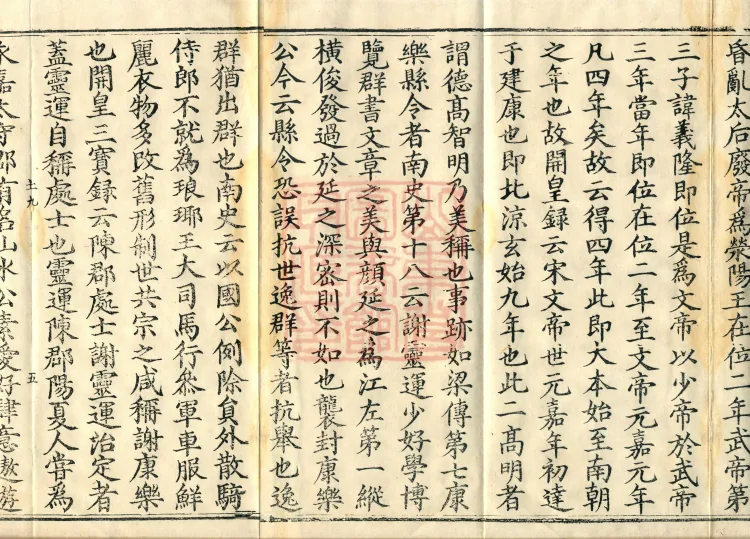 昏亂太后廢帝為滎陽王在位二年武帝第
三子諱義隆即位是為文帝以少帝於武帝
三年當年即位在位二年至文帝元嘉元年
凡四年矣故云得四年此即大本始至南朝
之年也故開皇録云宋文帝世元嘉年初達
于建康也即北涼玄始九年也此二髙明者
謂德髙智明乃美稱也事跡如梁傳第七康
樂縣令者南史第十八云謝靈運少好學博
覽群書文章之美與顔延之為江左第一縱
横俊發過於延之深密則不如也襲封康樂
公今云縣令恐誤抗世逸群等者抗舉也逸
群猶出群也南史云以國公例除貟外散騎
侍郎不就為琅瑘王大司馬行叅軍車服鮮
麗衣物多改舊形制世共宗之咸稱謝康樂
也開皇三寶録云陳郡處士謝靈運治定者
蓋靈運自稱處士也靈運陳郡陽夏人嘗為
永嘉太守郡有名山水公素愛好肆意遨遊
土九
五